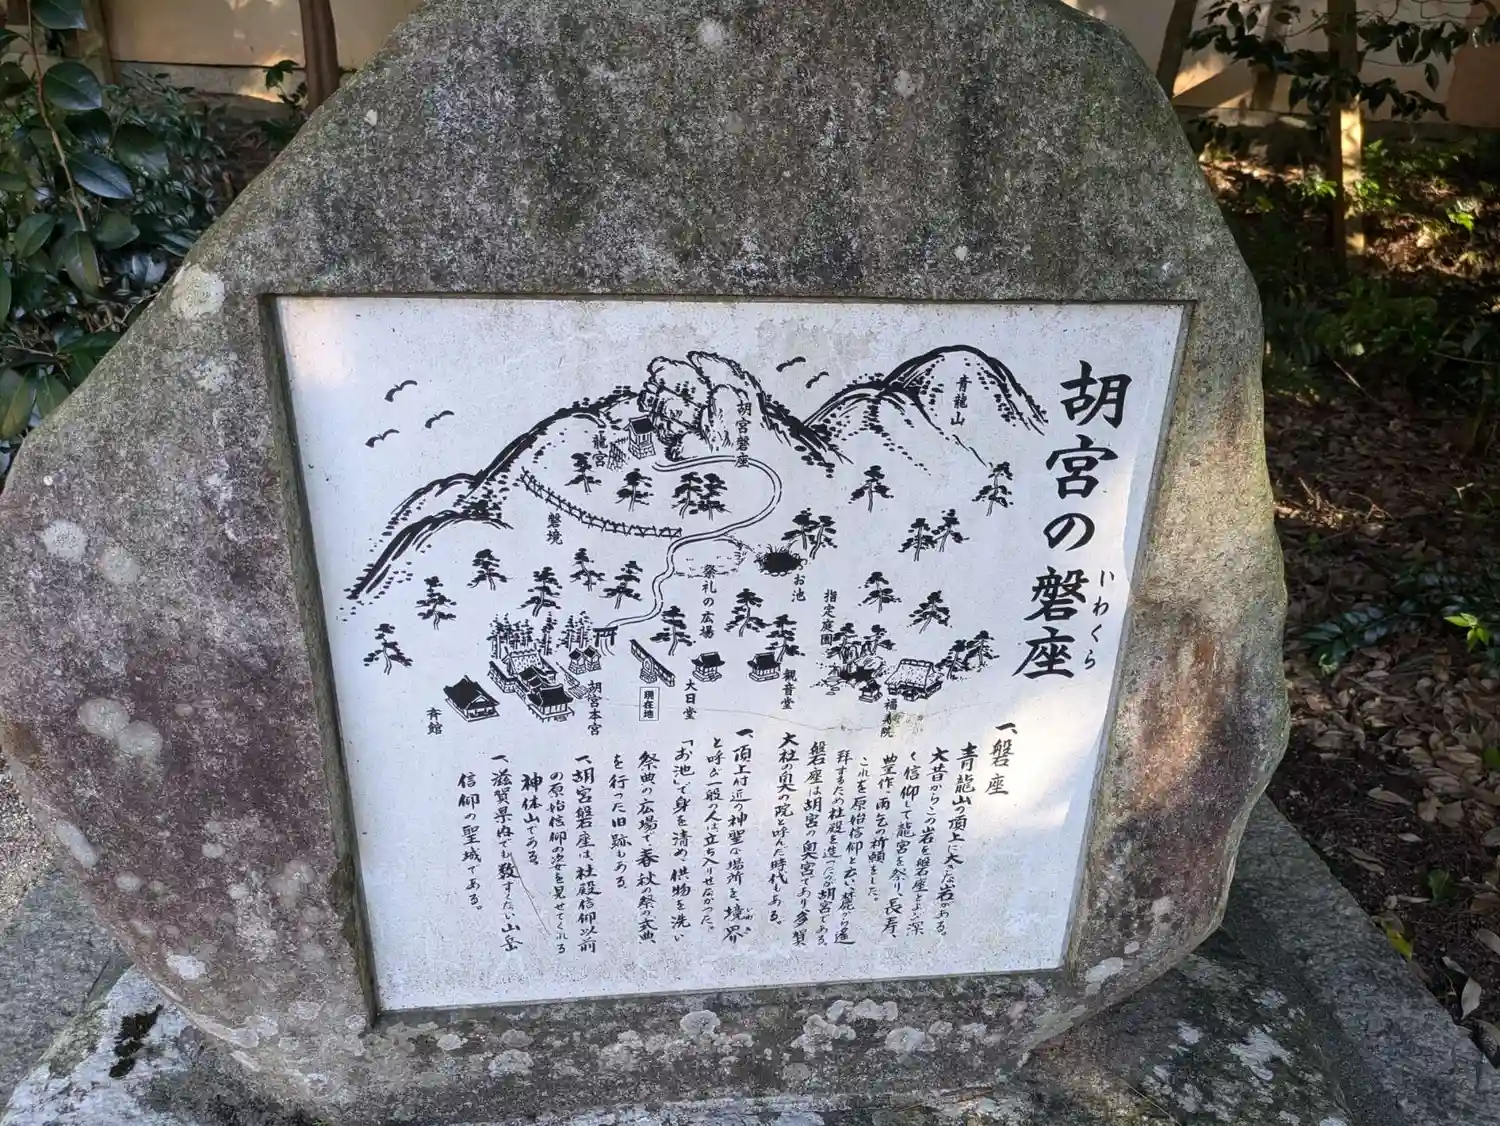 胡宮の磐座
いわくら
青龍山
胡宮磐座
龍宮
磐境
お池
祭礼の広場
指定庭園
福寿院
観音堂
大日堂
現在地
胡宮本宮
斉館
一、磐座
青龍山の頂上に大きな岩がある。
大昔からこの岩を磐座とよび深
く信仰して龍宮を祭り、長寿、
豊作・雨乞の祈願をした。
これを原始信仰と云い
拝するため社殿を造ったのが胡宮である。
磐座は胡宮の奥宮であり多賀
大社の奥の院と呼んだ時代もある。
一、頂上付近の神聖な場所を、境界
と呼び一般の人は立ち入りせなかった。
「お池」で身を清め、供物を洗い
祭典の広場で、春秋の祭の式典
を行った旧跡もある。
一、胡宮磐座は、社殿信仰以前
の原始信仰の姿を見せてくれる
神体山である。
一、滋賀県内でも数すくない山岳
信仰の聖域である。